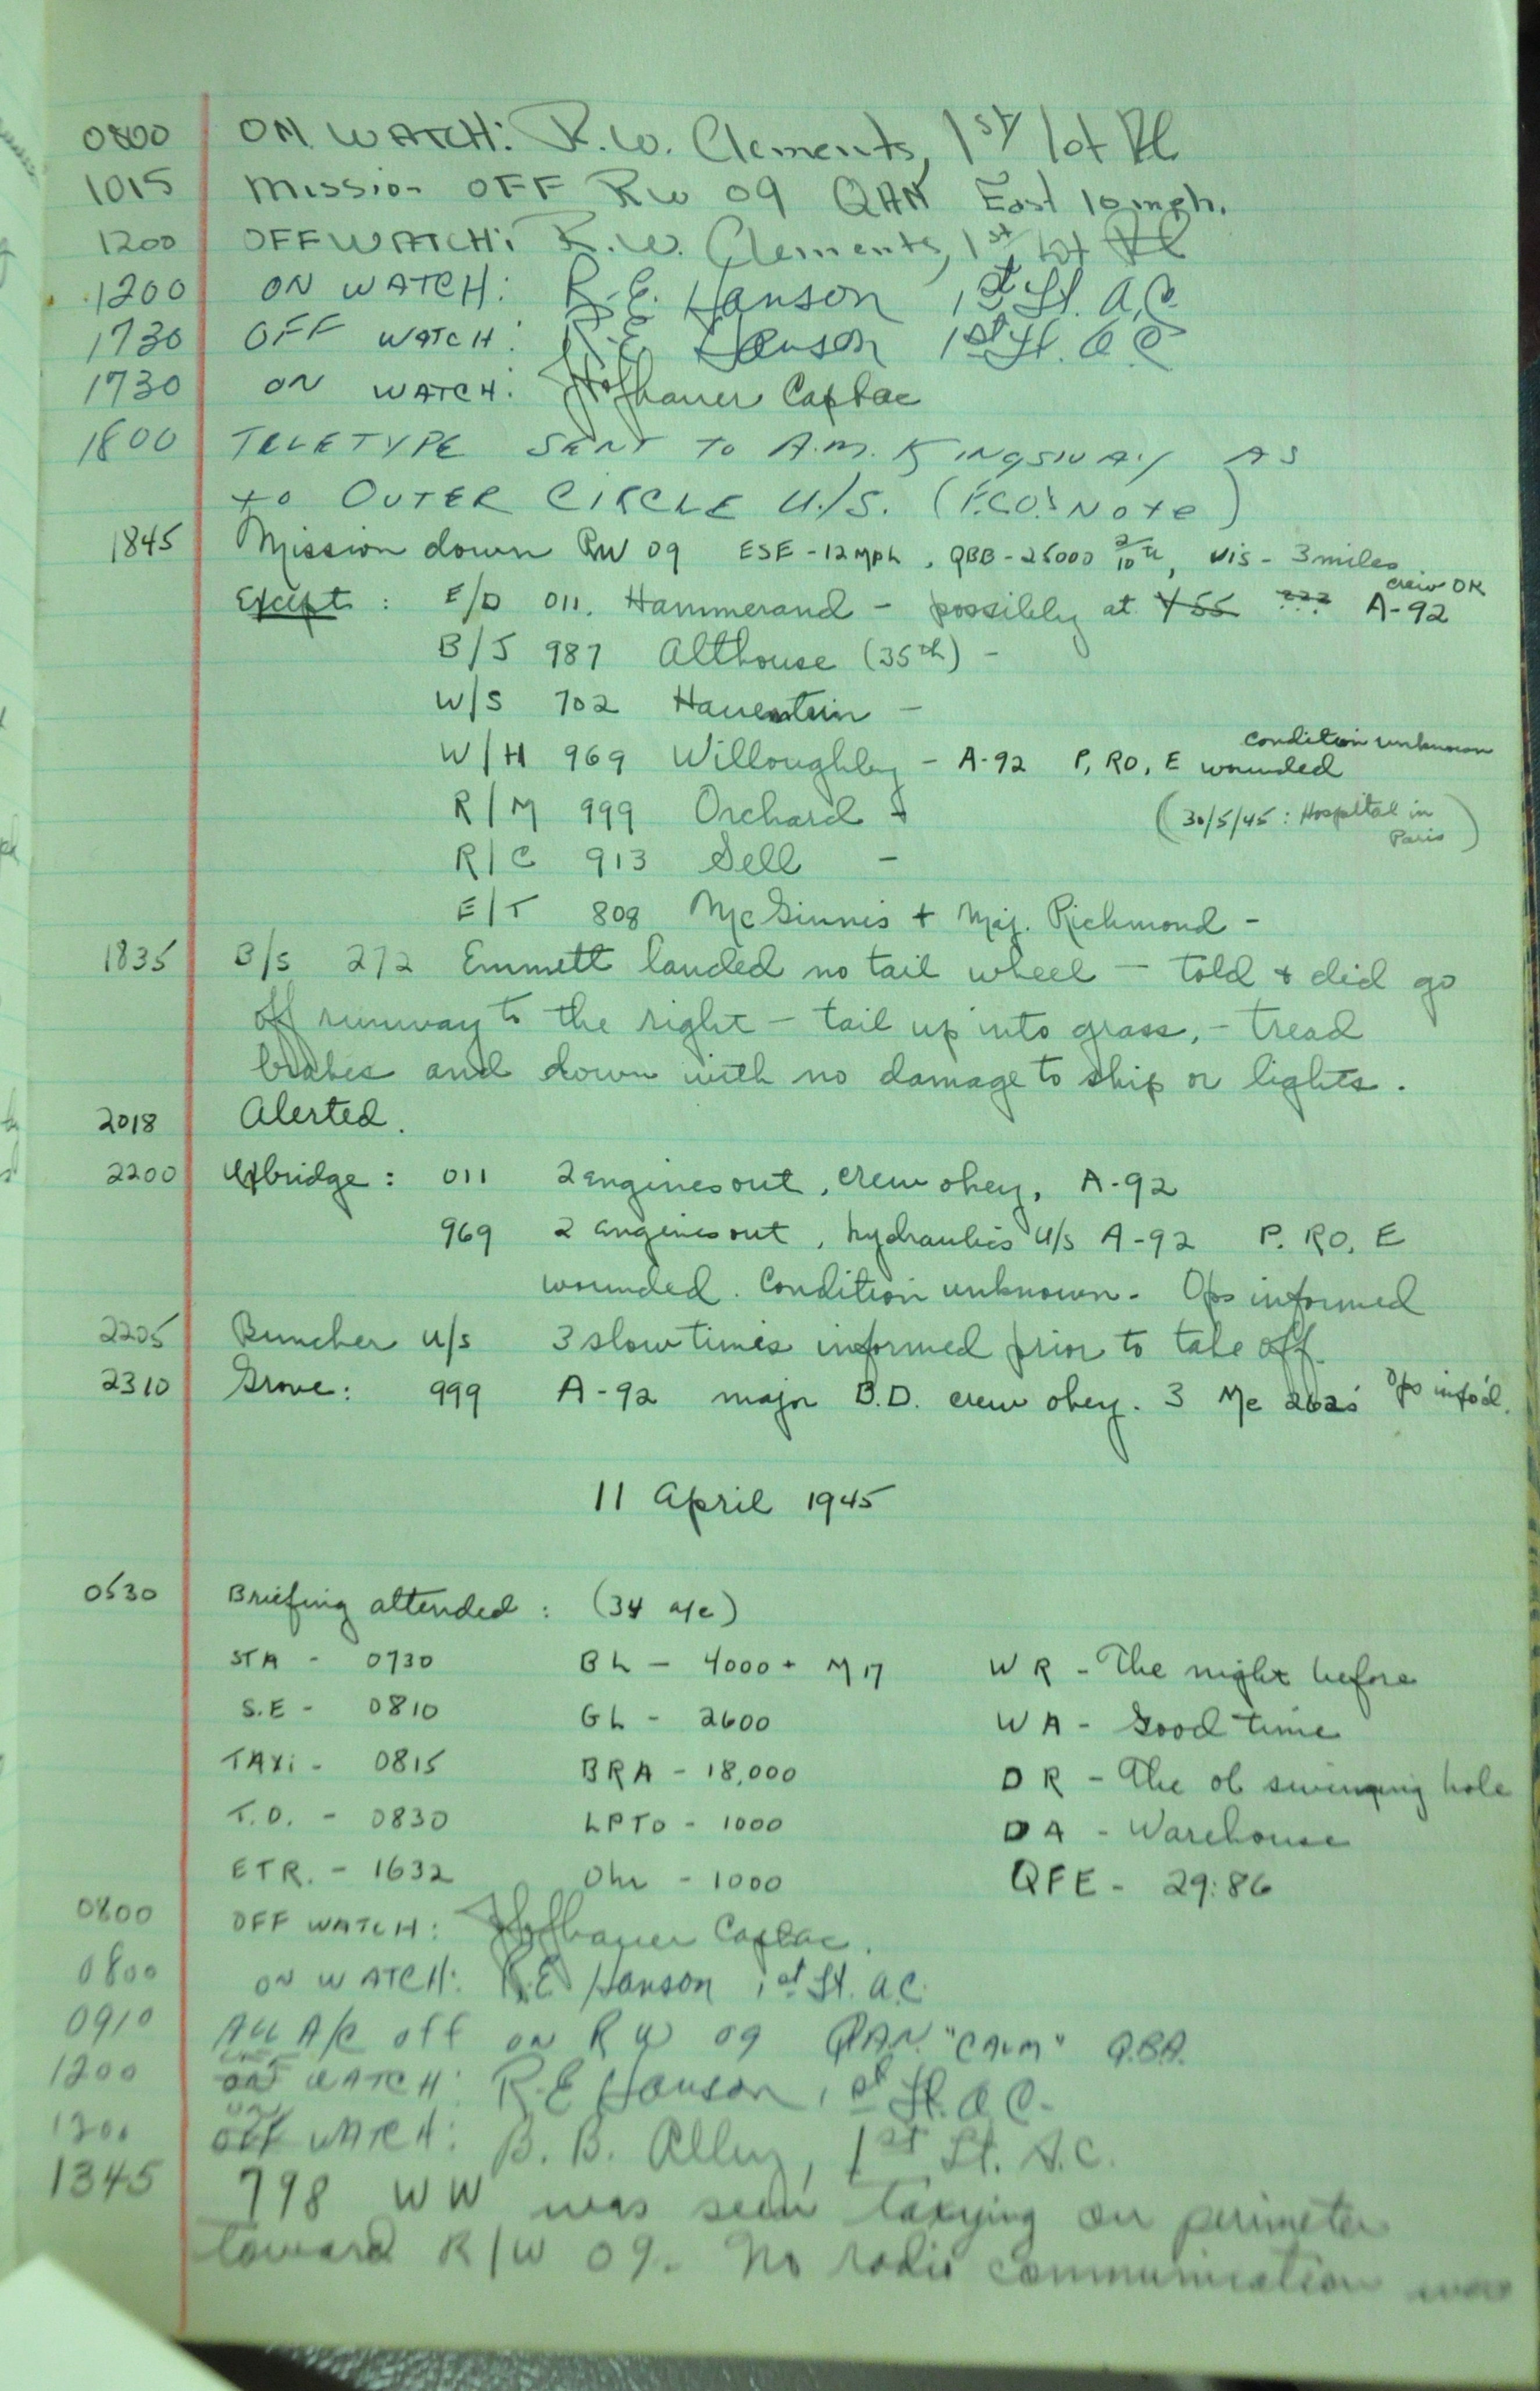 0800 ON WATCH: R.W. Clements, 1st
1015 Mission OFF RW 09 QAN East 10 mph.
1200 OFF WATCH: R.W. Clements, 1st
1200 ON WATCH: R.E. Hanson 1st Lt. A.C.
1730 OFF WATCH: R.E. Hanson 1st Lt. A C
1730 ON WATCH: Hofbauer Capt ac
1800 TELETYPE SENT TO A.M. KINGSWAY AS
to OUTER CIRCLE U./S. (F.C.O.'s Note)
1845 Mission down RW 09 ESE - 12 mph, QBB - 25000 2/10 , vis - 3 miles
crew OK
Except: E/D 011. Hammerand - possibly at Y55 ??? A-92
B/J 987 Althouse (35th) -
W/S 702 Hauenstein -
condition unknown
W/H 969 Willoughby - A-92 P, RO, E wounded
R/M 999 Orchard - (30/5/45: Hospital in
Paris)
R/C 913 Sell -
E/T 808 McGinnis + Maj. Richmond -
1835 B/S 272 Emmett landed no tail wheel - told & did go
off runway to the right - tail up into grass, - tread
brakes and down with no damage to ship or lights.
2018 Alerted.
2200 Uxbridge: 011 2 engines out, crew okey, A-92
969 2 engines out, hydraulics U/S A-92 P. RO, E
wounded. Condition unknown. Ops informed
2205 Buncher U/S 3 slow times informed prior to take off.
2310 Grove: 999 A-92 major B.D. crew okey. 3 Me 262s' Ops info'd.
11 April 1945
0530 Briefing attended: (34 a/c)
STA - 0730 BL - 4000 + M17 WR - The night before
S.E - 0810 GL - 2600 WA - Good time
TAXi - 0815 BRA - 18,000 DR - The ol swimming hole
T.O. - 0830 LPTO - 1000 DA - Warehouse
ETR. - 1632 - 1000 QFE - 29:86
0800 OFF WATCH: Hofbauer Capt ac.
0800 ON WATCH: R.E Hanson 1st Lt. A.C.
0910 All A/C off ON RW 09 QAN. "CALM" Q.B.A.
1200 WATCH: R.E Hanson, 1st Lt. A C.
1200 WATCH: B. B. Alley, 1st Lt. A.C.
1345 798 WW was seen taxying on perimeter
toward R/W 09. No radio communication was